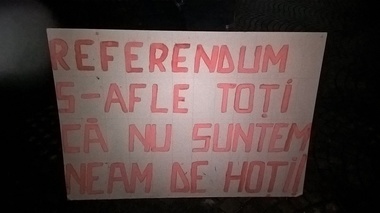 REFERENDUM
S-AFLE TOȚI
CĂ NU SUNTEM
NEAM DE HOTII